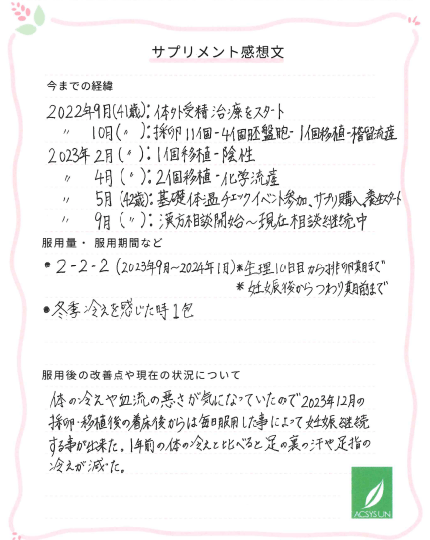 サプリメント感想文
今までの経緯
2022年9月(41歳):体外受精治療をスタート
〃 10月(〃):採卵11個-4個胚盤胞-1個移植-稽留流産
2023年2月(〃):1個移植-陰性
〃 4月(〃):2個移植-化学流産
〃 5月(42歳):基礎体温チェックイベント参加、サプリ購入、養生スタート
〃 9月(〃):漢方相談開始~現在相談継続中
服用量・服用期間など
•2-2-2(2023年9月~2024年1月)*生理10日目から排卵期まで
*妊娠後からつわり期前まで
•冬季冷えを感じた時1包
服用後の改善点や現在の状況について
体の冷えや血流の悪さが気になっていたので2023年12月の
採卵・移植後の着床後からは毎日服用した事によって妊娠継続
する事が出来た。1年前の体の冷えと比べると足の裏の汗や足指の
冷えが減った。
ACSYSLIN